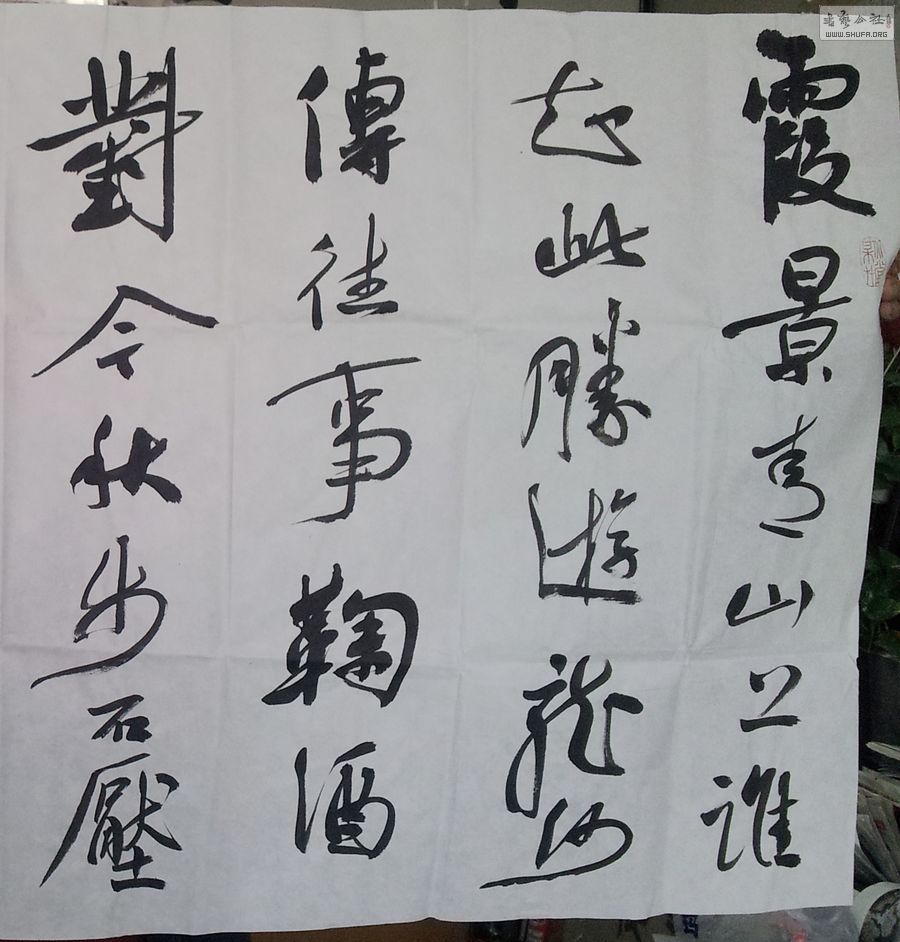 霞景青山上誰
起此勝遊龍沙
傳往事鞠酒
對今秋步石壓
書藝公社
WWW.SHUFA.ORG